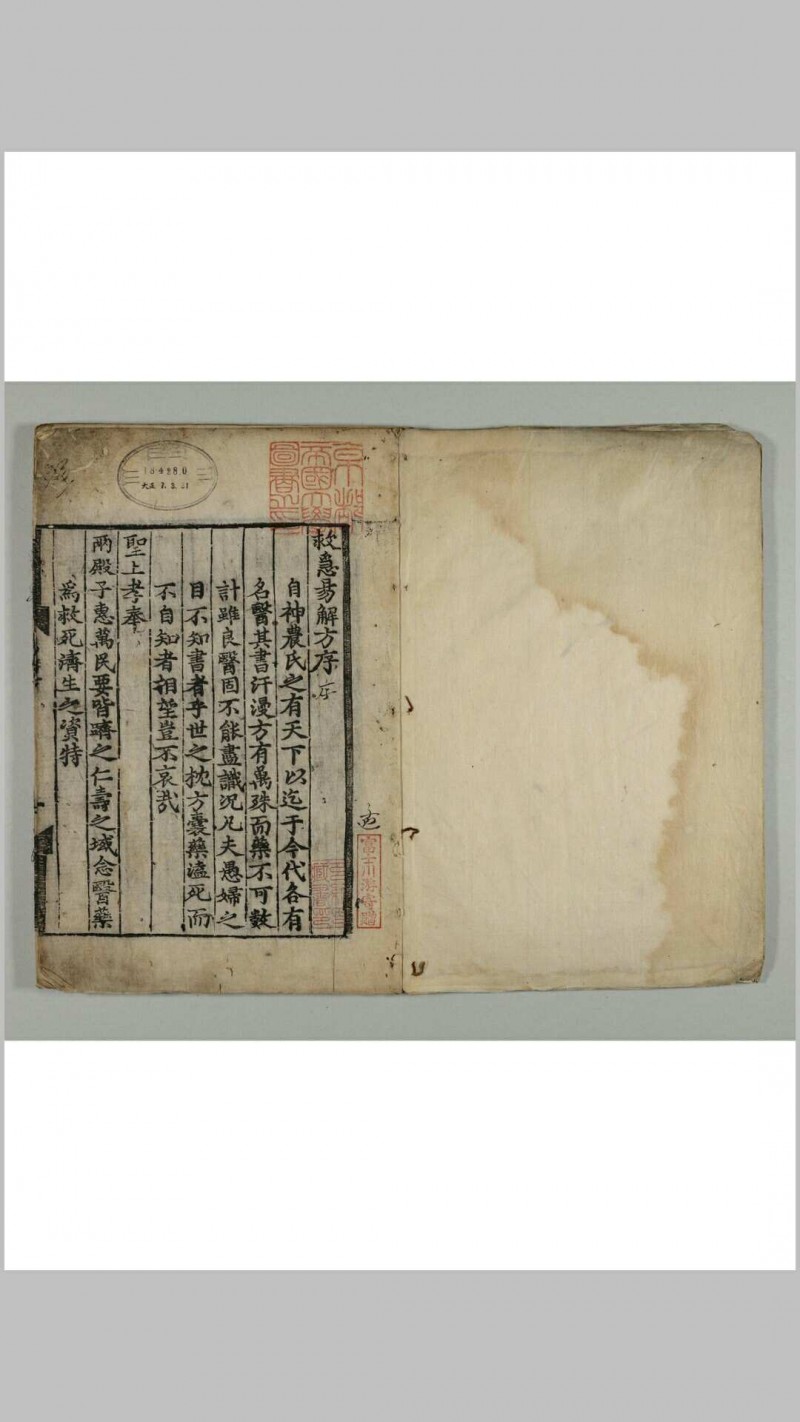 救急易解方序
自神農氏之有天下以迄于今代各有
名醫其書汗漫方有萬殊而藥不可數
計雖良醫固不能盡識況凡夫愚婦之
目不知書者乎世之枕方囊藥溘死而
不自知者相望豈不哀哉
聖上孝奉
兩殿子惠萬民要皆躋之仁壽之域念醫藥
爲救死濟生之資特
京都
帝國大學
圖書之印
富士川游寄贈
大正 7. 3. 31